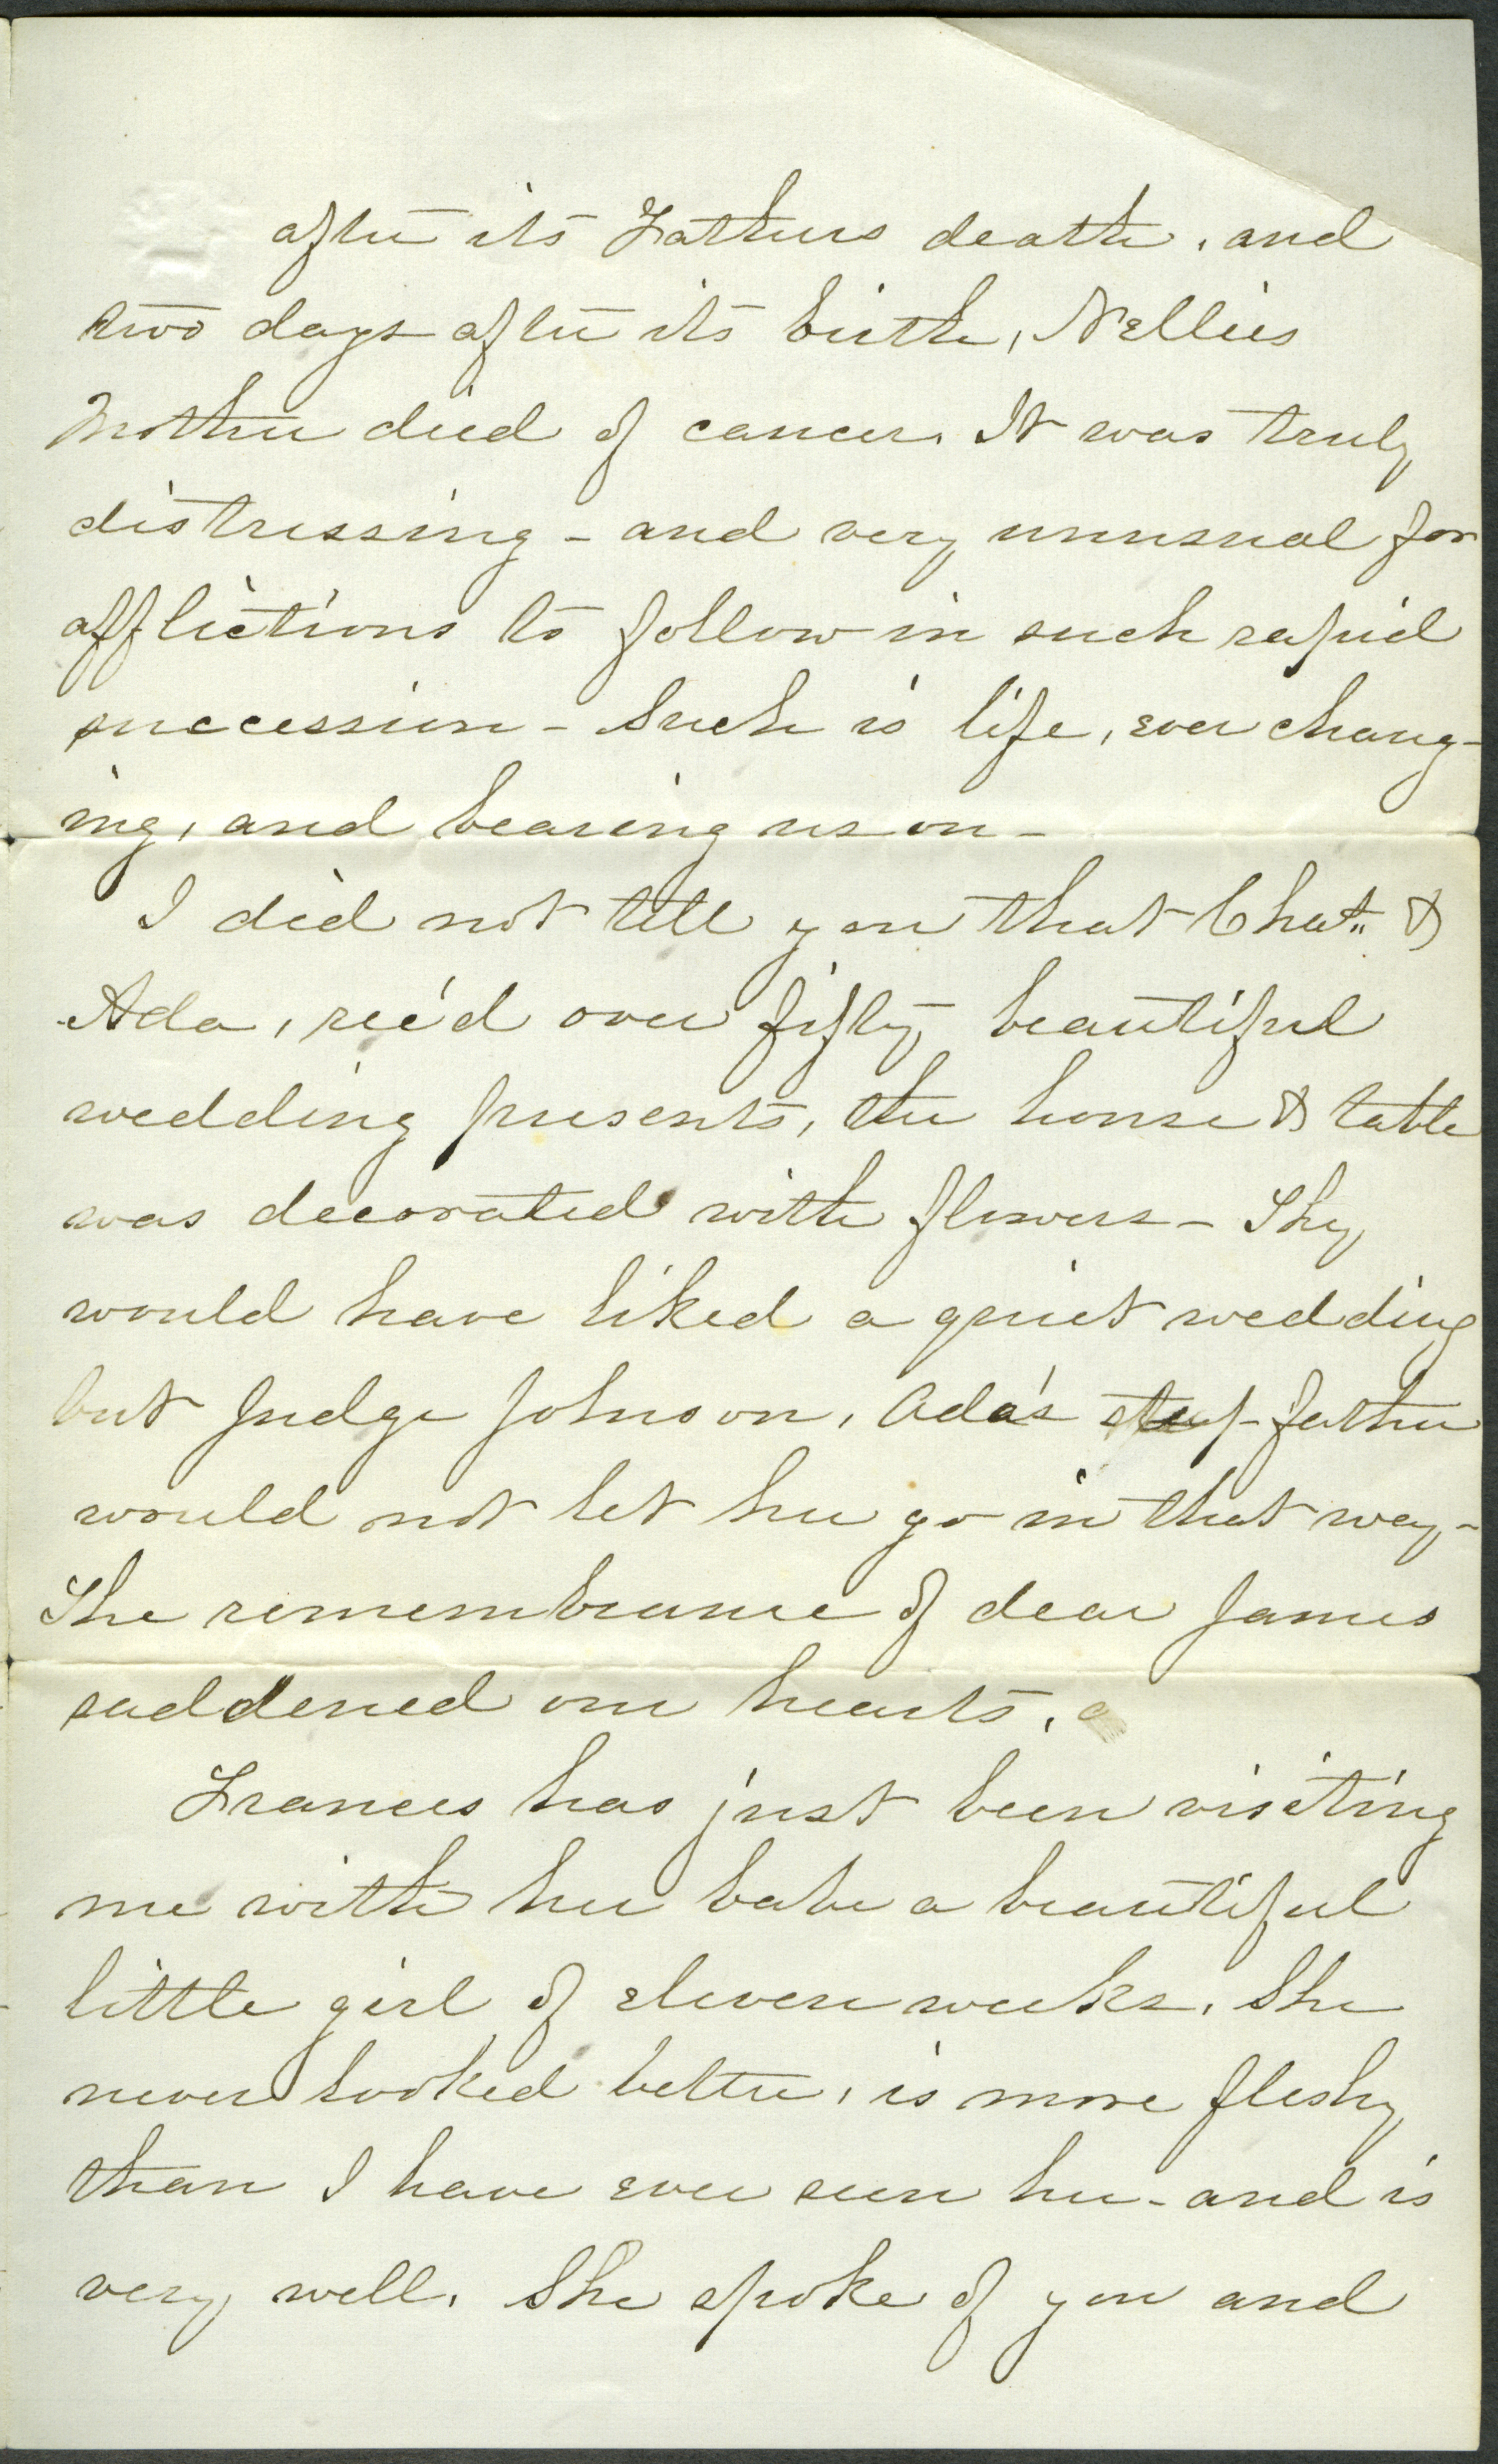 after its Fathers death, and
two days after its birth, Nellies
Mother died of cancer. It was truly
distressing - and very unusual for
afflictions to follow in such rapid
succession - Such is life, ever chang-
ing, and bearing us on -
I did not tell you that Chat. &
Ada, rec'd over fifty beautiful
wedding presents, the house & table
was decorated with flowers - They
would have liked a quiet wedding
but Judge Johnson, Ada's step-father
would not let her go in that way -
The remembrance of dear James
saddened our hearts,
Frances has just been visiting
me with her babe a beautiful
little girl of eleven weeks. She
never looked better, is more fleshy
than I have ever seen her - and is
very well. She spoke of you and